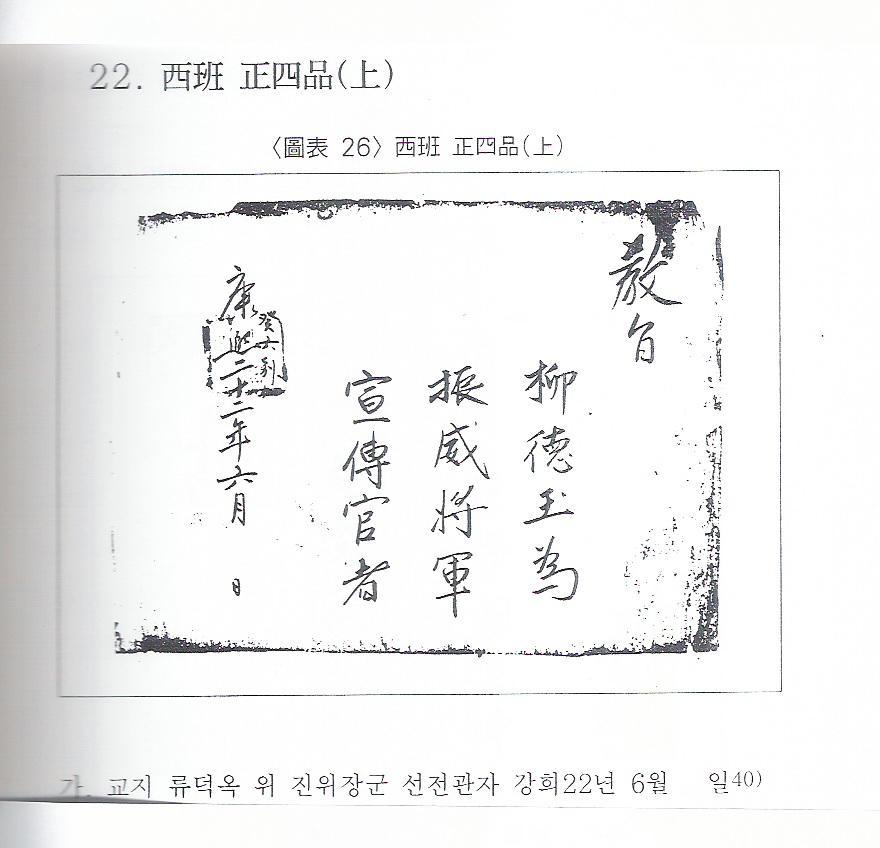 22. 西班 正四品(上)
〈圖表 26〉 西班 正四品(上)
敎旨
柳德玉為
振威將軍
宣傳官者
康熙二十二年六月 日
가. 교지 류덕옥 위 진위장군 선전관자 강희22년 6월 일40)